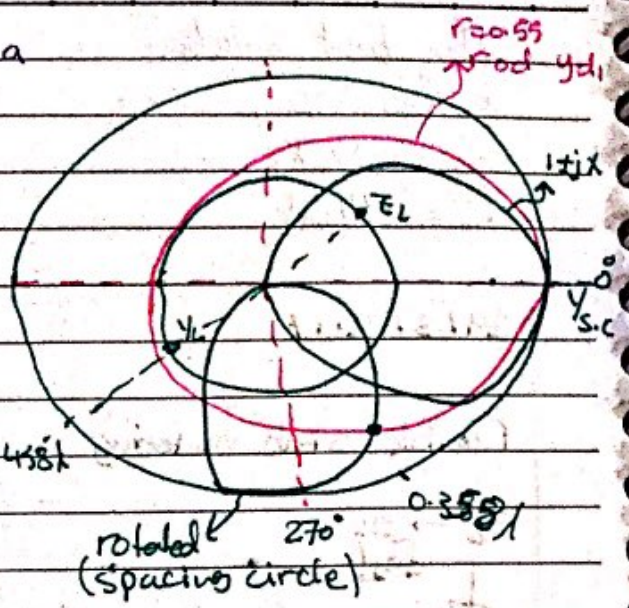 a
r=0.59
r od yd1
1±jX
ZL
0°
YS.C
YL
270°
rotated
(spacing circle)